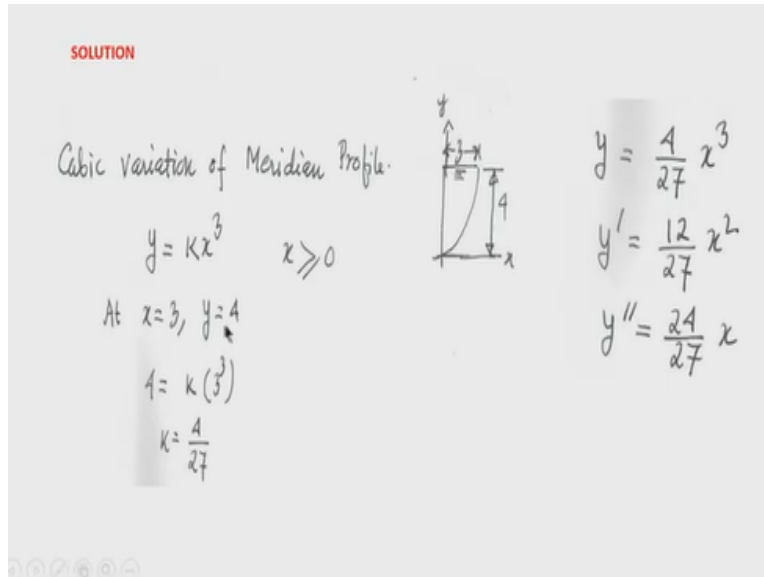 SOLUTION
Cubic variation of Meridian Profile.
y = Kx³    x ≥ 0
At x=3, y=4
4 = K(3³)
K = 4/27
y
3
4
x
y = 4/27 x³
y' = 12/27 x²
y'' = 24/27 x